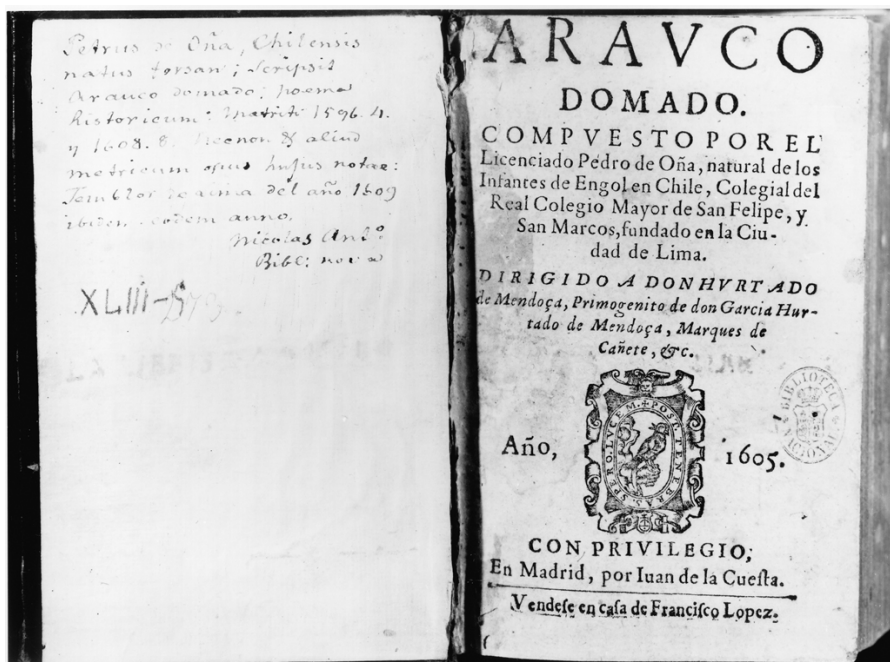 Petrus de Oña, Chilensis
natus forsan; scripsit
Arauco domado: poema
historicum: Matriti 1596. 4.
y 1608. 8. Necnon & aliud
metricum opus hujus notae:
Temblor de Lima del año 1609
ibidem eodem anno.
Nicolas Ant.º
Bibl: nova
XLIII-
ARAVCO
DOMADO.
COMPVESTO POR EL
Licenciado Pedro de Oña, natural de los
Infantes de Engol en Chile, Colegial del
Real Colegio Mayor de San Felipe, y
San Marcos, fundado en la Ciu-
dad de Lima.
DIRIGIDO A DON HVRTADO
de Mendoça, Primogenito de don Garcia Hur-
tado de Mendoça, Marques de
Cañete, &c.
SPERO LVCEM. POST TENEBRAS
BIBLIOTECA NACIONAL
Año, 1605.
CON PRIVILEGIO,
En Madrid, por Iuan de la Cuesta.
Vendese en casa de Francisco Lopez.